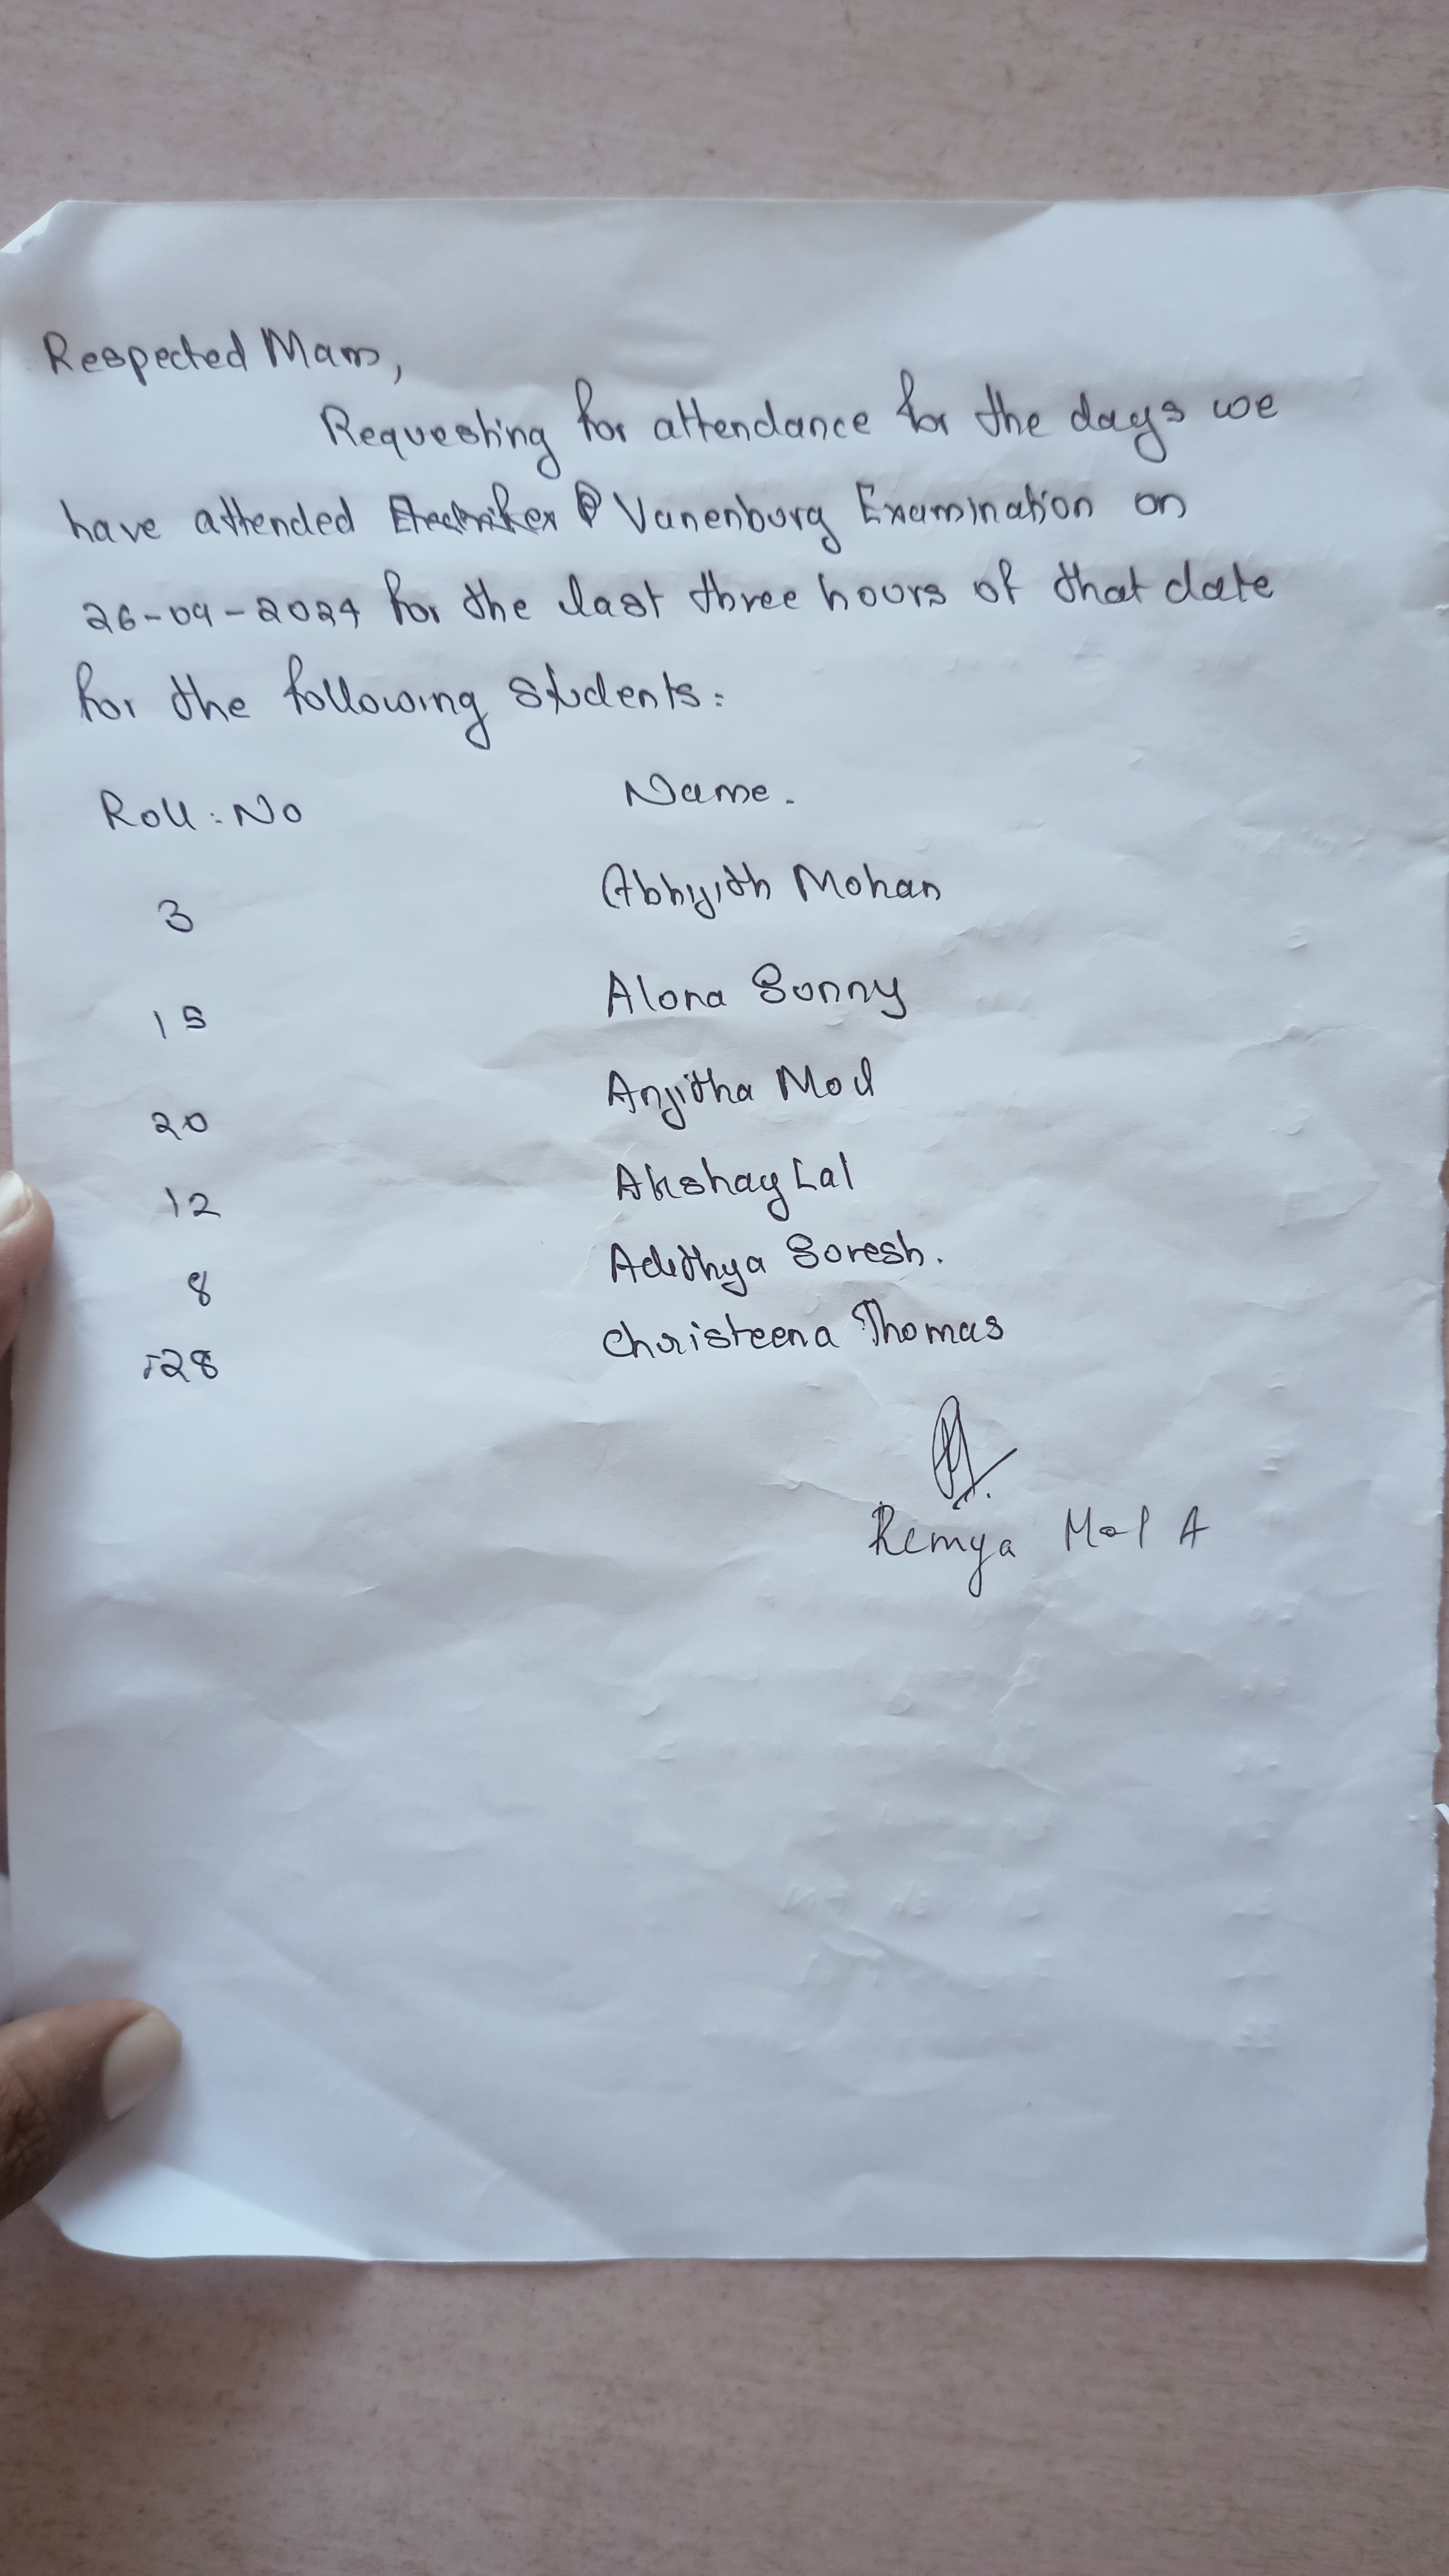 Respected Mam,
Requesting for attendance for the days we
have attended Vanenburg Examination on
26-09-2024 for the last three hours of that date
for the following students:
Roll: No Name.
3 Abhyith Mohan
15 Alona Sunny
20 Anjitha Mol
12 Akshay Lal
8 Adithya Suresh.
28 Christeena Thomas
Remya Mol A